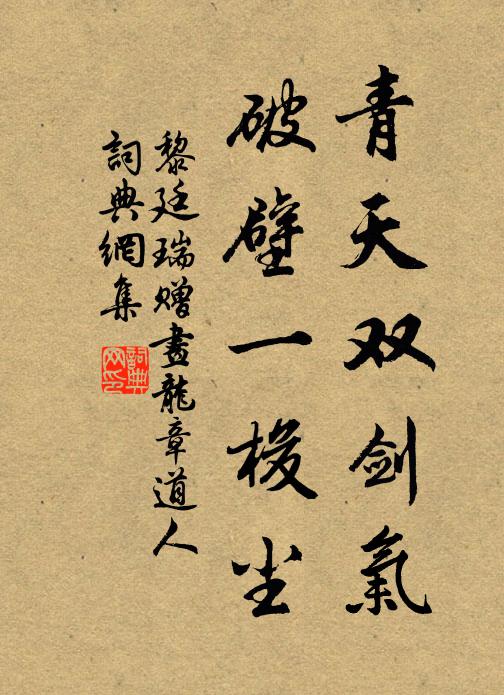 青天双剑氣
破壁一梭尘
黎廷瑞赠畫龍章道人
詞典網集
詞典网印